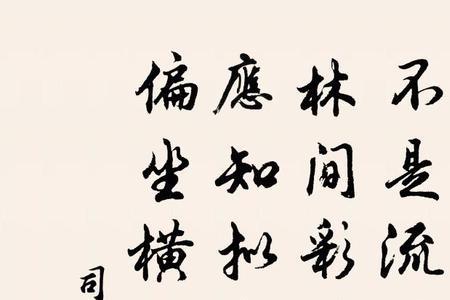 不是流
林間彩
應知拟
偏坐横
司